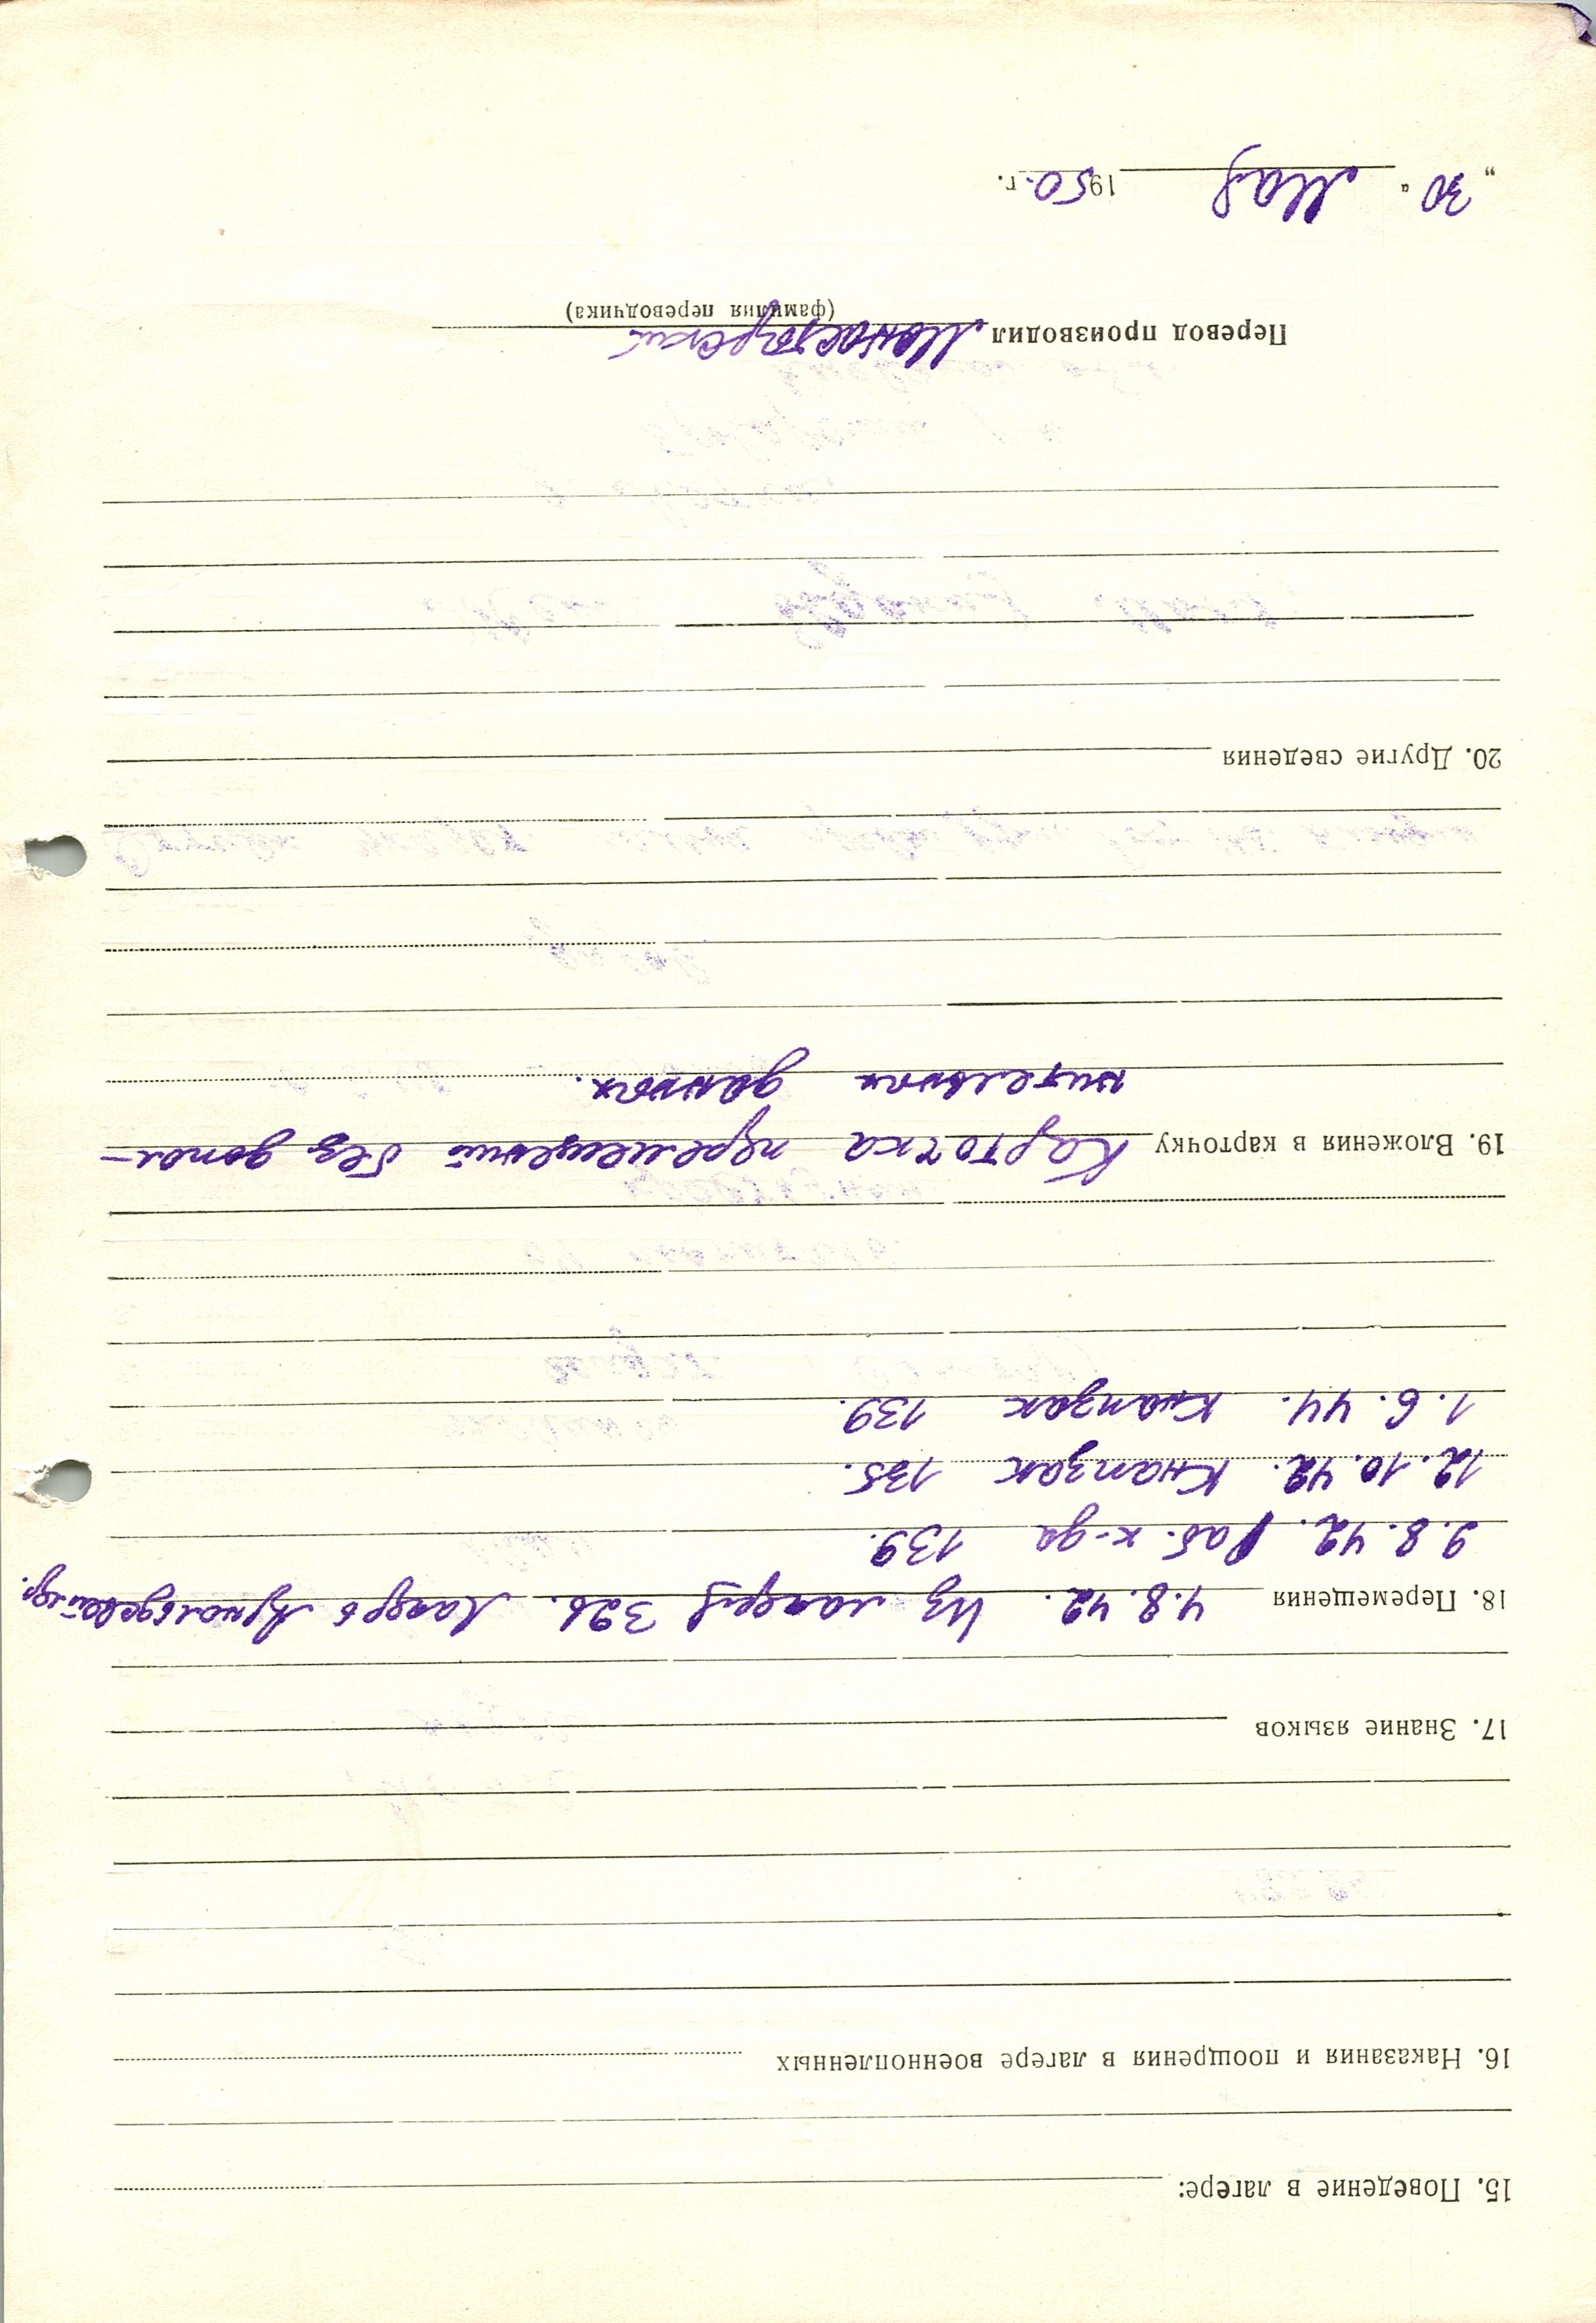 15. Поведение в лагере:
16. Наказания и поощрения в лагере военнопленных
17. Знание языков
18. Перемещения 4.8.42. Из лагеря 326. Лагерь Арнольдсвейлер.
9.8.42. Раб. к-да 139.
12.10.42. Кнапзак 135.
1.6.44. Кнапзак 139.
19. Вложения в карточку Карточка перемещений без допол-
нительных данных.
20. Другие сведения
Перевод производил Монастырский
(фамилия переводчика)
„30“ Мая 1950 г.